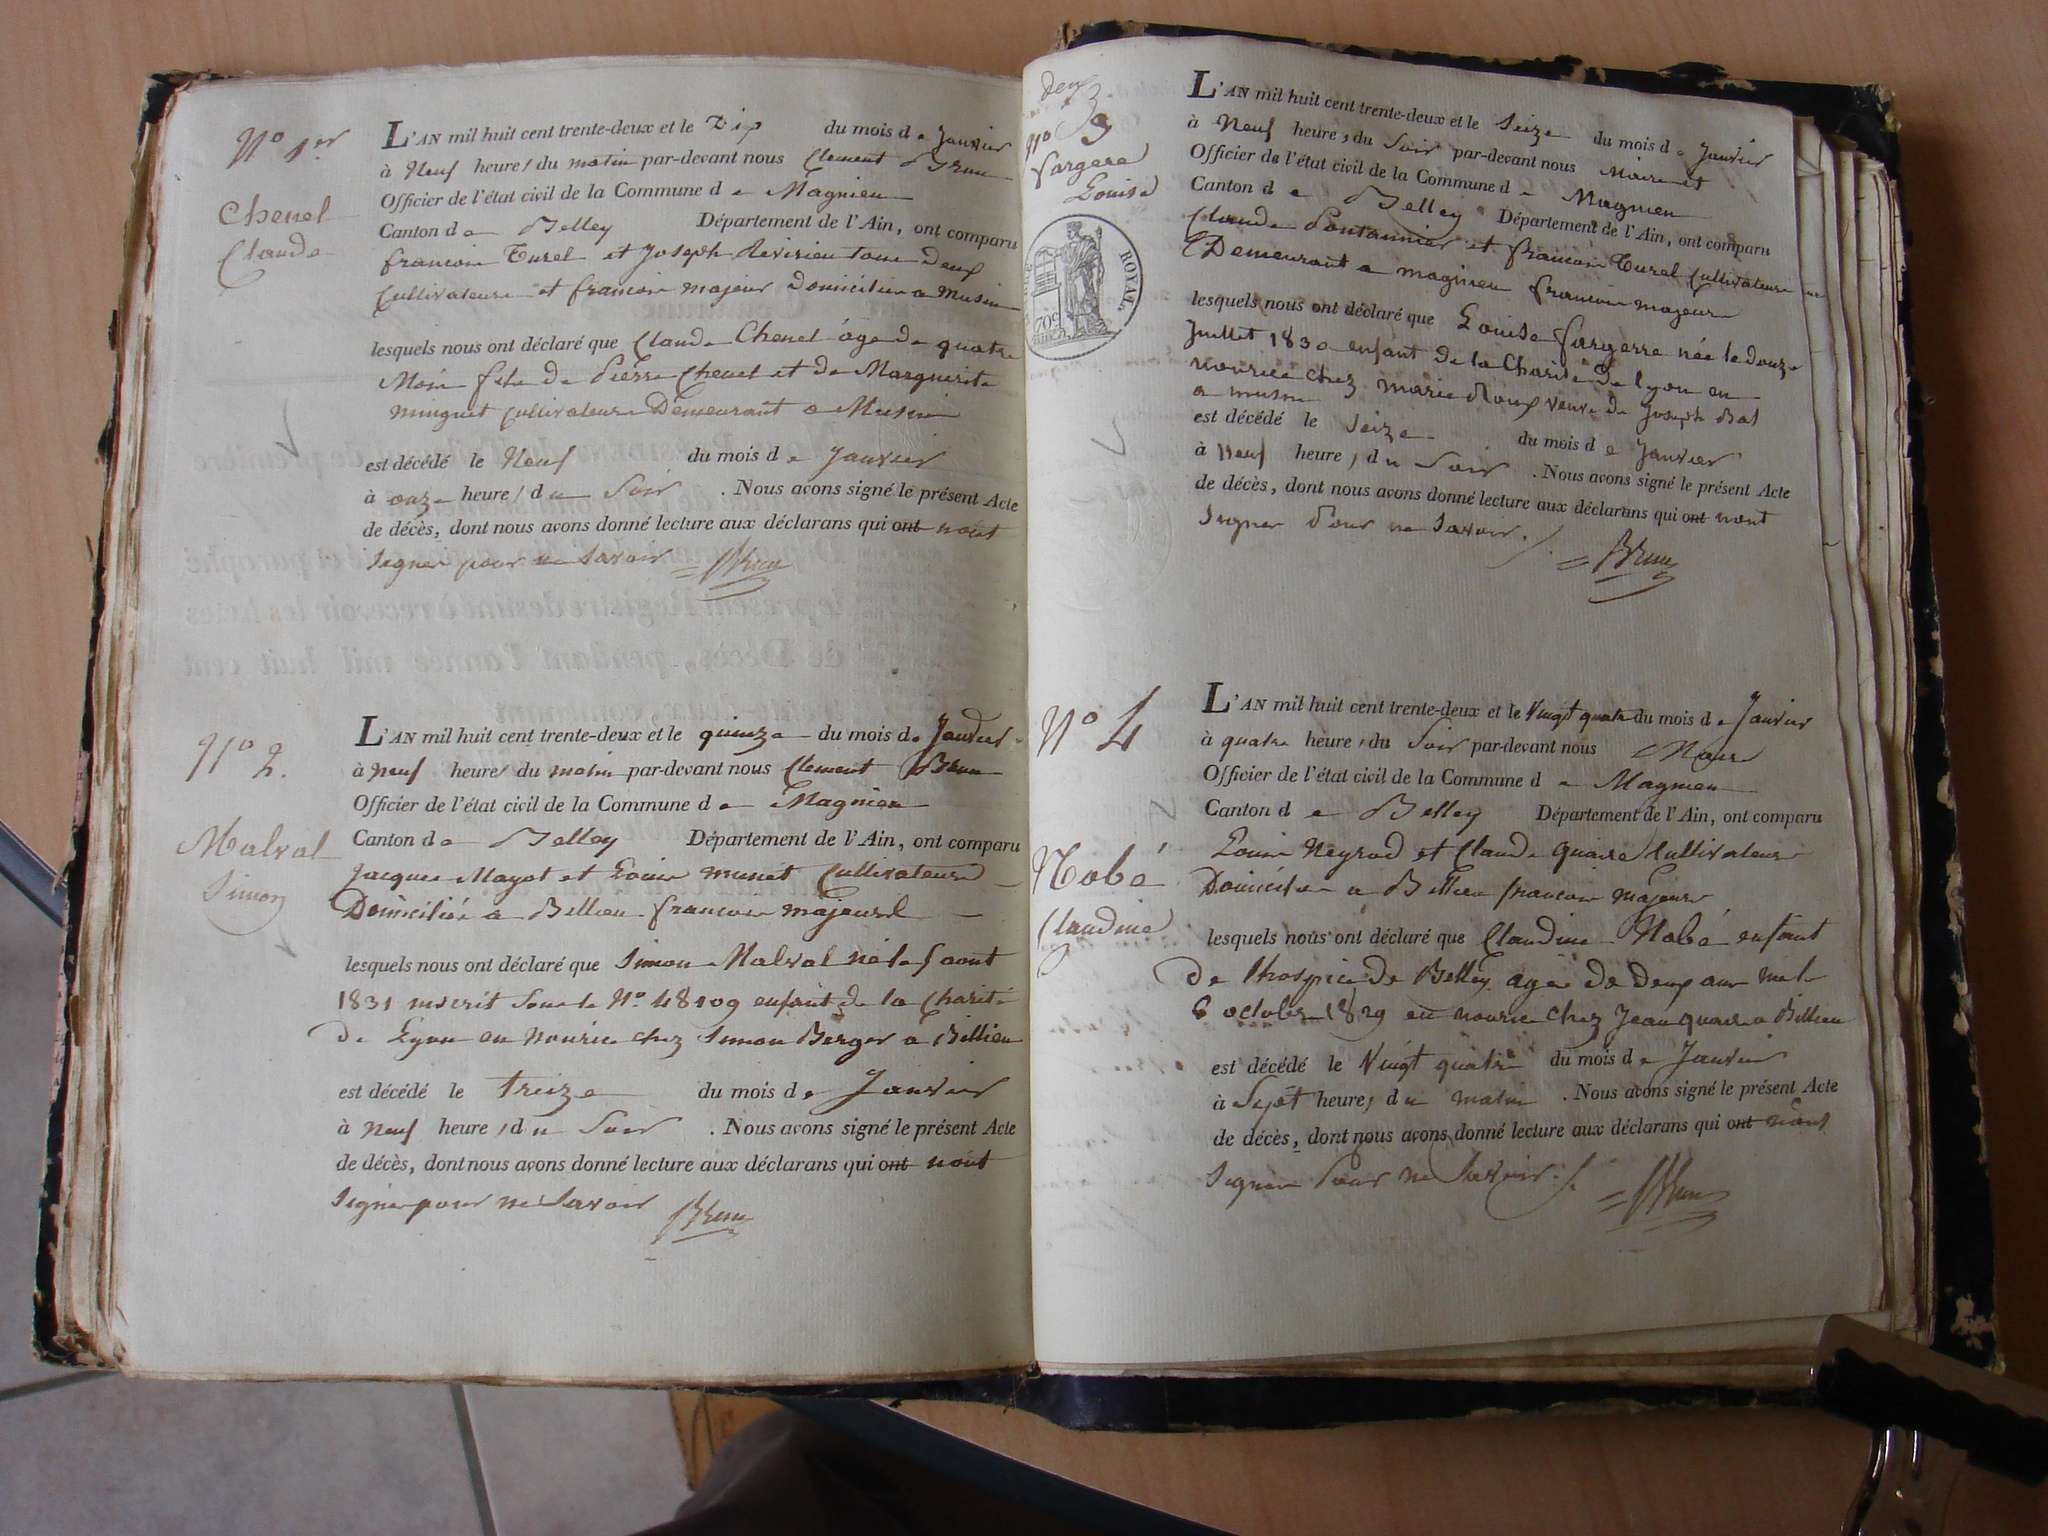 N° 1er
Chenel
Claude
L'AN mil huit cent trente-deux et le Dix du mois de Janvier
à Neuf heures du matin par-devant nous Clement Brun
Officier de l'état civil de la Commune de Magnieu
Canton de Belley Département de l'Ain, ont comparu
francois Turel et Joseph tous deux
Cultivateurs et francois majeur Domicilier a Musin
lesquels nous ont déclaré que Claude Chenel âge de quatre
Mois fils de Pierre Chenel et de Marguerite
minguet Cultivateurs Demeurant a Musin
est décédé le Neuf du mois de Janvier
à onze heures du Soir . Nous avons signé le présent Acte
de décès, dont nous avons donné lecture aux déclarans qui ont n'ont
Signer pour ne Savoir Brun
N° 2.
Malval
Simon
L'AN mil huit cent trente-deux et le quinze du mois de Janvier
à Neuf heures du matin par-devant nous Clement Brun
Officier de l'état civil de la Commune de Magnieu
Canton de Belley Département de l'Ain, ont comparu
Jacques Mayot et Louis munet Cultivateurs
Domiciliés a Billieu francois majeurs
lesquels nous ont déclaré que Simon Malval né le 5 aout
1831 inscrit Sous le N° 48109 enfant de la Charité
de Lyon en Nourice chez Simon Berger a Billieu
est décédé le treize du mois de Janvier
à Neuf heures du Soir . Nous avons signé le présent Acte
de décès, dont nous avons donné lecture aux déclarans qui ont nont
Signer pour ne Savoir Brun
deux
N° 3
fargere
Louise
ROYAL
L'AN mil huit cent trente-deux et le Seize du mois de Janvier
à Neuf heures du Soir par-devant nous Maire et
Officier de l'état civil de la Commune de Magnieu
Canton de Belley Département de l'Ain, ont comparu
Claude Pontannier et francois Turel Cultivateurs
Demeurant a magnieu francois majeurs
lesquels nous ont déclaré que Louise fargerre née le douze
Juillet 1830 enfant de la Charité de lyon en
nourice chez marie Roux veuve de Joseph Bal
a musin
est décédé le Seize du mois de Janvier
à Neuf heures du Soir . Nous avons signé le présent Acte
de décès, dont nous avons donné lecture aux déclarans qui ont nont
Signer Pour ne Savoir. Brun
N° 4
Nobé
Claudine
L'AN mil huit cent trente-deux et le Vingt quatre du mois de Janvier
à quatre heures du Soir par-devant nous Maire
Officier de l'état civil de la Commune de Magnieu
Canton de Belley Département de l'Ain, ont comparu
Louis Neyrod et Claude quaire Cultivateurs
Domicilier a Billieu francois majeurs
lesquels nous ont déclaré que Claudine Nobé enfant
de lhospice de Belley agée de deux ans née le
6 octobre 1829 en nourice chez Jean quaire a Billieu
est décédé le Vingt quatre du mois de Janvier
à Sept heures du matin . Nous avons signé le présent Acte
de décès, dont nous avons donné lecture aux déclarans qui ont nont
Signer Pour ne Savoir. Brun